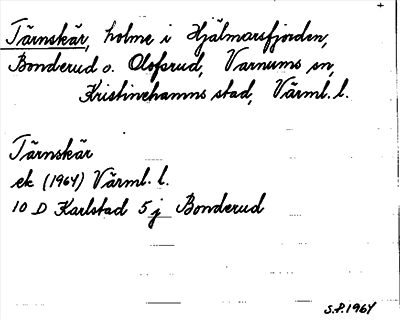 Tärnskär, holme i Hjälmarsfjorden,
Bonderud o. Olofsrud, Varnums sn,
Kristinehamns stad, Värml. l.
Tärnskär
ek (1964) Värml. l.
10 D Karlstad 5 j Bonderud
S.P. 1964